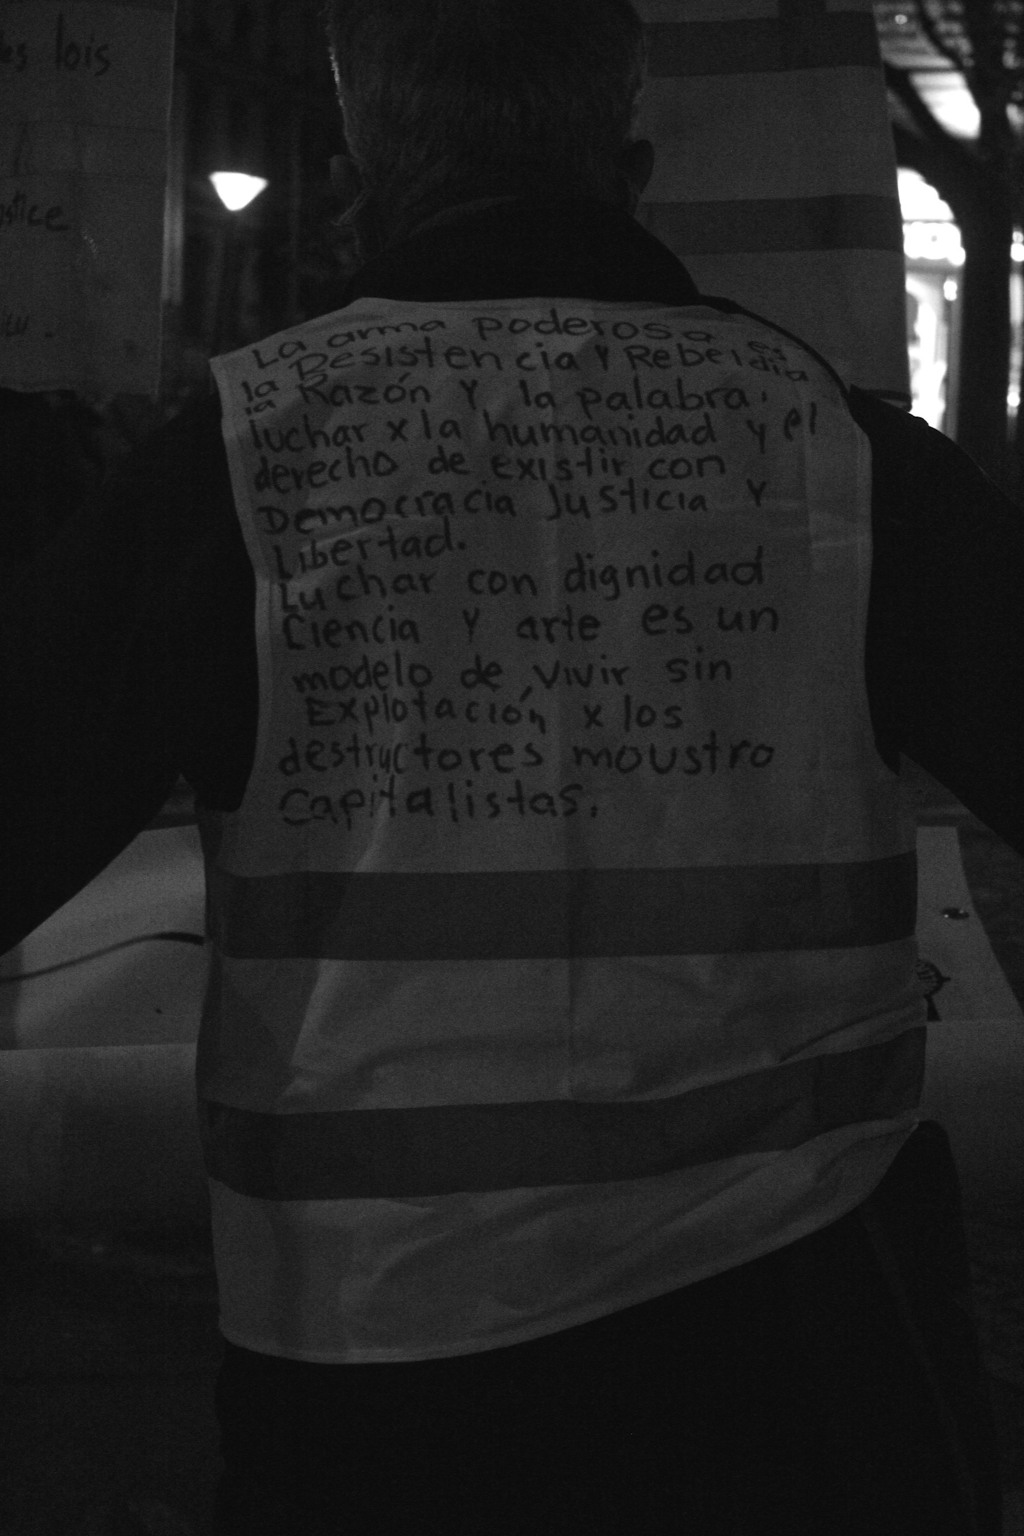 es lois
stice
La arma poderosa es
la Resistencia Y Rebeldia
la Razón Y la palabra,
luchar x la humanidad y el
derecho de existir con
Democracia Justicia Y
Libertad.
Luchar con dignidad
Ciencia Y arte es un
modelo de vivir sin
Explotación x los
destructores moustro
Capitalistas.